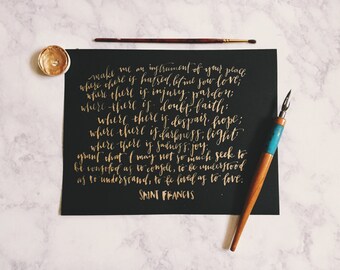 make me an instrument of your peace
where there is hatred, let me sow love;
where there is injury, pardon;
where there is doubt, faith;
where there is despair, hope;
where there is darkness, light
where there is sadness, joy.
grant that I may not so much seek to
be consoled as to console, to be understood
as to understand, to be loved as to love.
SAINT FRANCIS